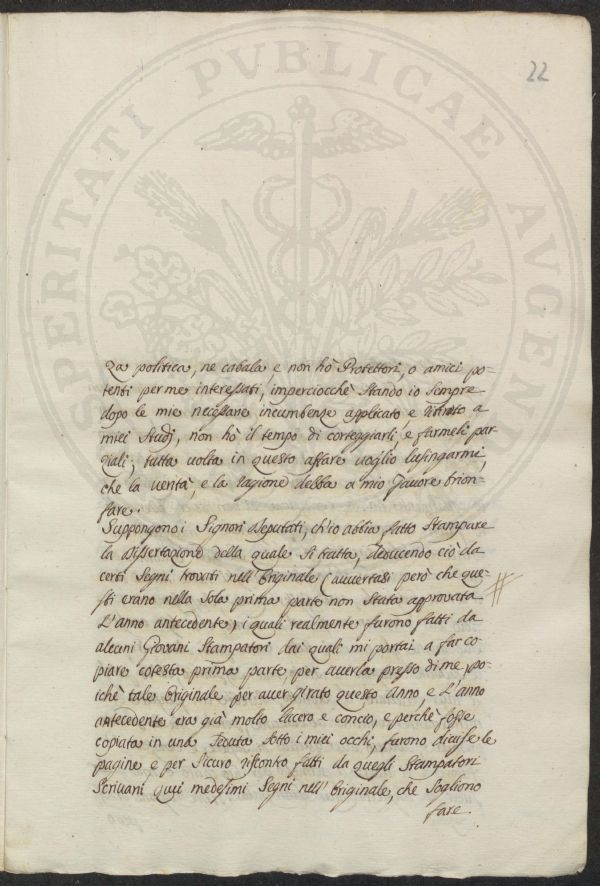 22
PROSPERITATI PVBLICAE AVGENDAE
za politica, ne cabala, e non hò Protettori, o amici po=
tenti per me interessati, imperciocchè stando io sempre
dopo le mie necessarie incumbenze applicato, e ritirato a
miei Studj, non hò il tempo di corteggiarli, e farmeli par
ziali; tutta volta in questo affare voglio lusingarmi,
che la verità, e la ragione debba a mio favore trion=
fare.
Suppongono i Signori Deputati, ch'io abbia fatto stampare
la Dissertazione della quale si tratta, deducendo ciò da
certi segni trovati nell'Originale (avvertasi però che que=
sti erano nella sola prima parte non stata approvata
L'anno antecedente) i quali realmente furono fatti da
alcuni Giovani Stampatori dai quali mi portai a far co
piare cotesta prima parte per averla presso di me, po=
ichè tale Originale per aver girato questo anno, e L'anno
antecedente era già molto lacero e concio, e perchè fosse
copiata in una seduta sotto i miei occhi, furono divise le
pagine, e per sicuro riscontro fatti da quegli Stampatori
Scrivani quei medesimi segni nell'Originale, che sogliono
fare.